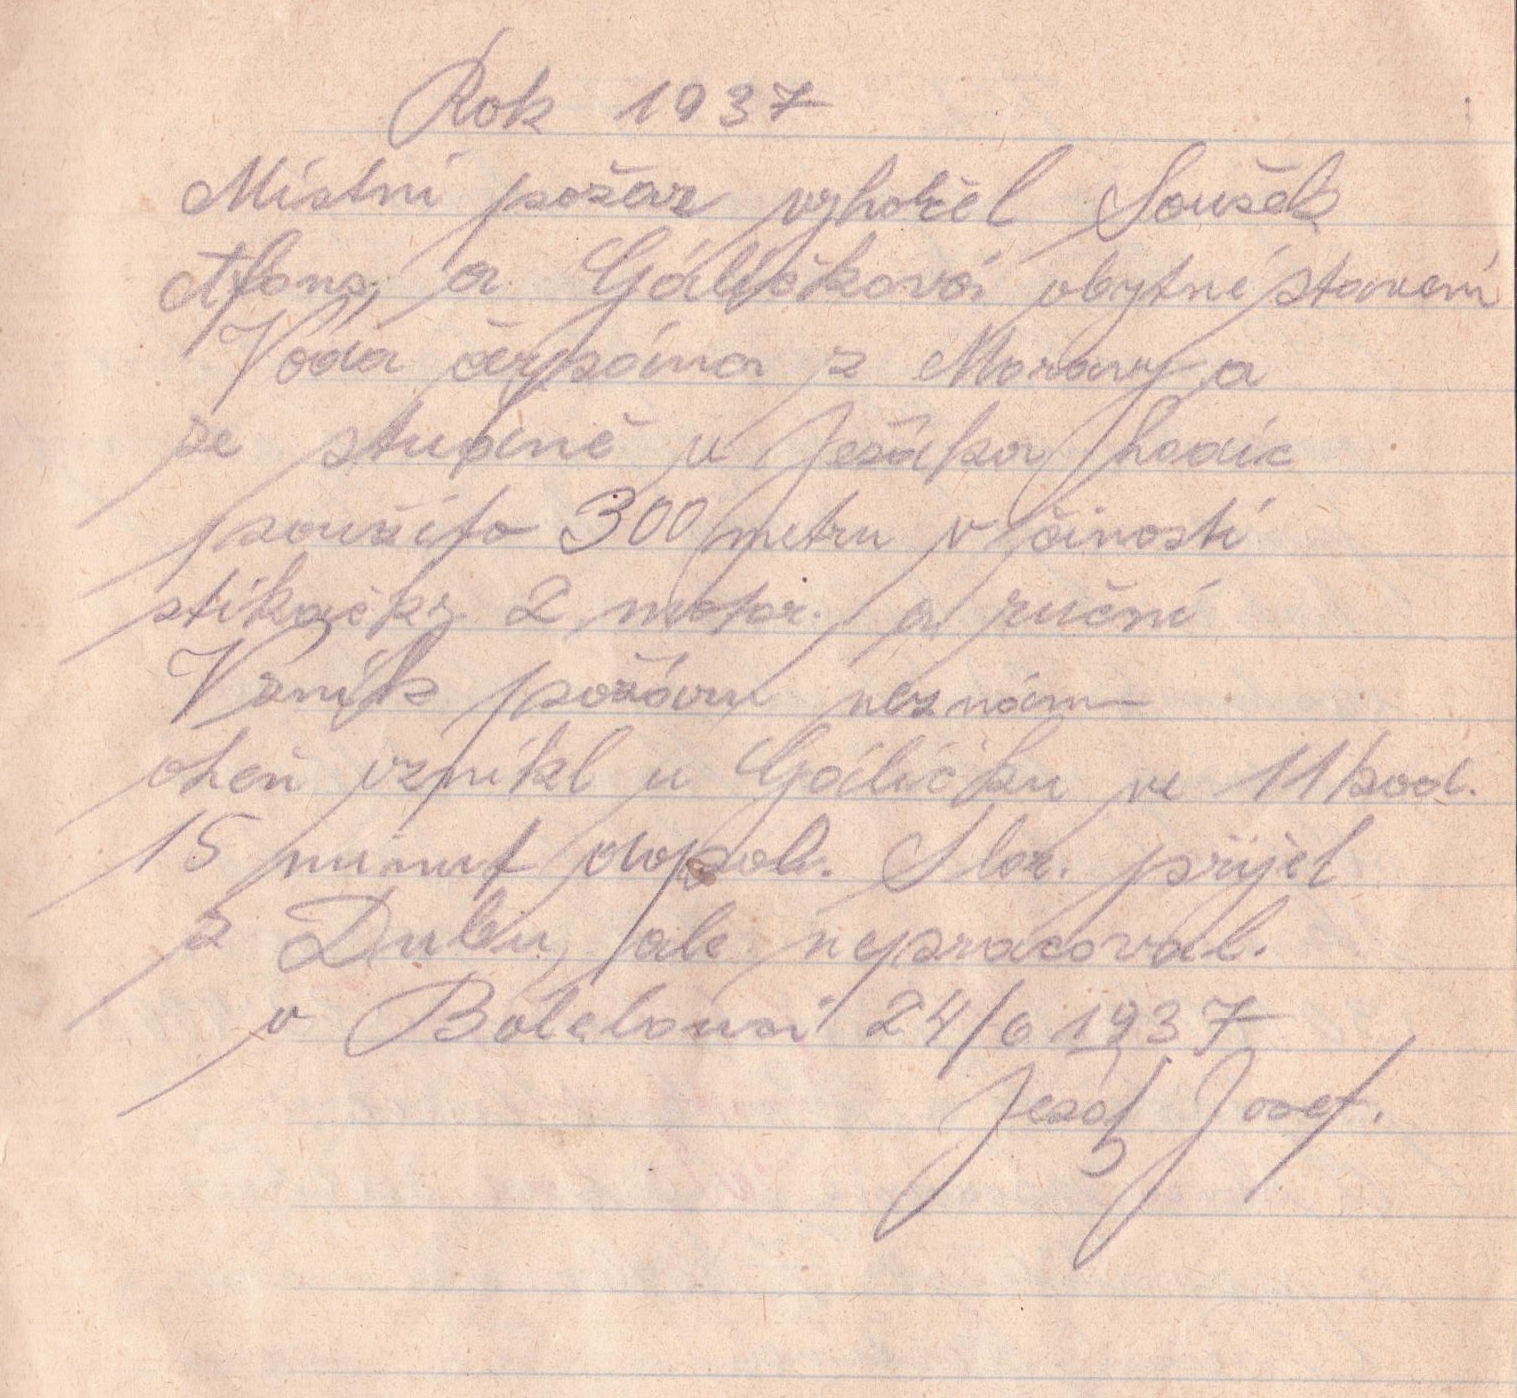 Rok 1937
Místní požár vyhořel Soušek
Alfons, a Gáličková obytné stavení
Voda čerpána z Moravy a
ze studně u Ježápka hadic
použito 300 metru v činosti
stikačky 2 motor. a ruční
Vznik požáru neznám
oheň vznikl u Gáličku ve 11 hod.
15 minut dopol. Sbor. přijel
z Dubu, ale nepracoval.
v Bolelouci 24/6 1937
Josef.